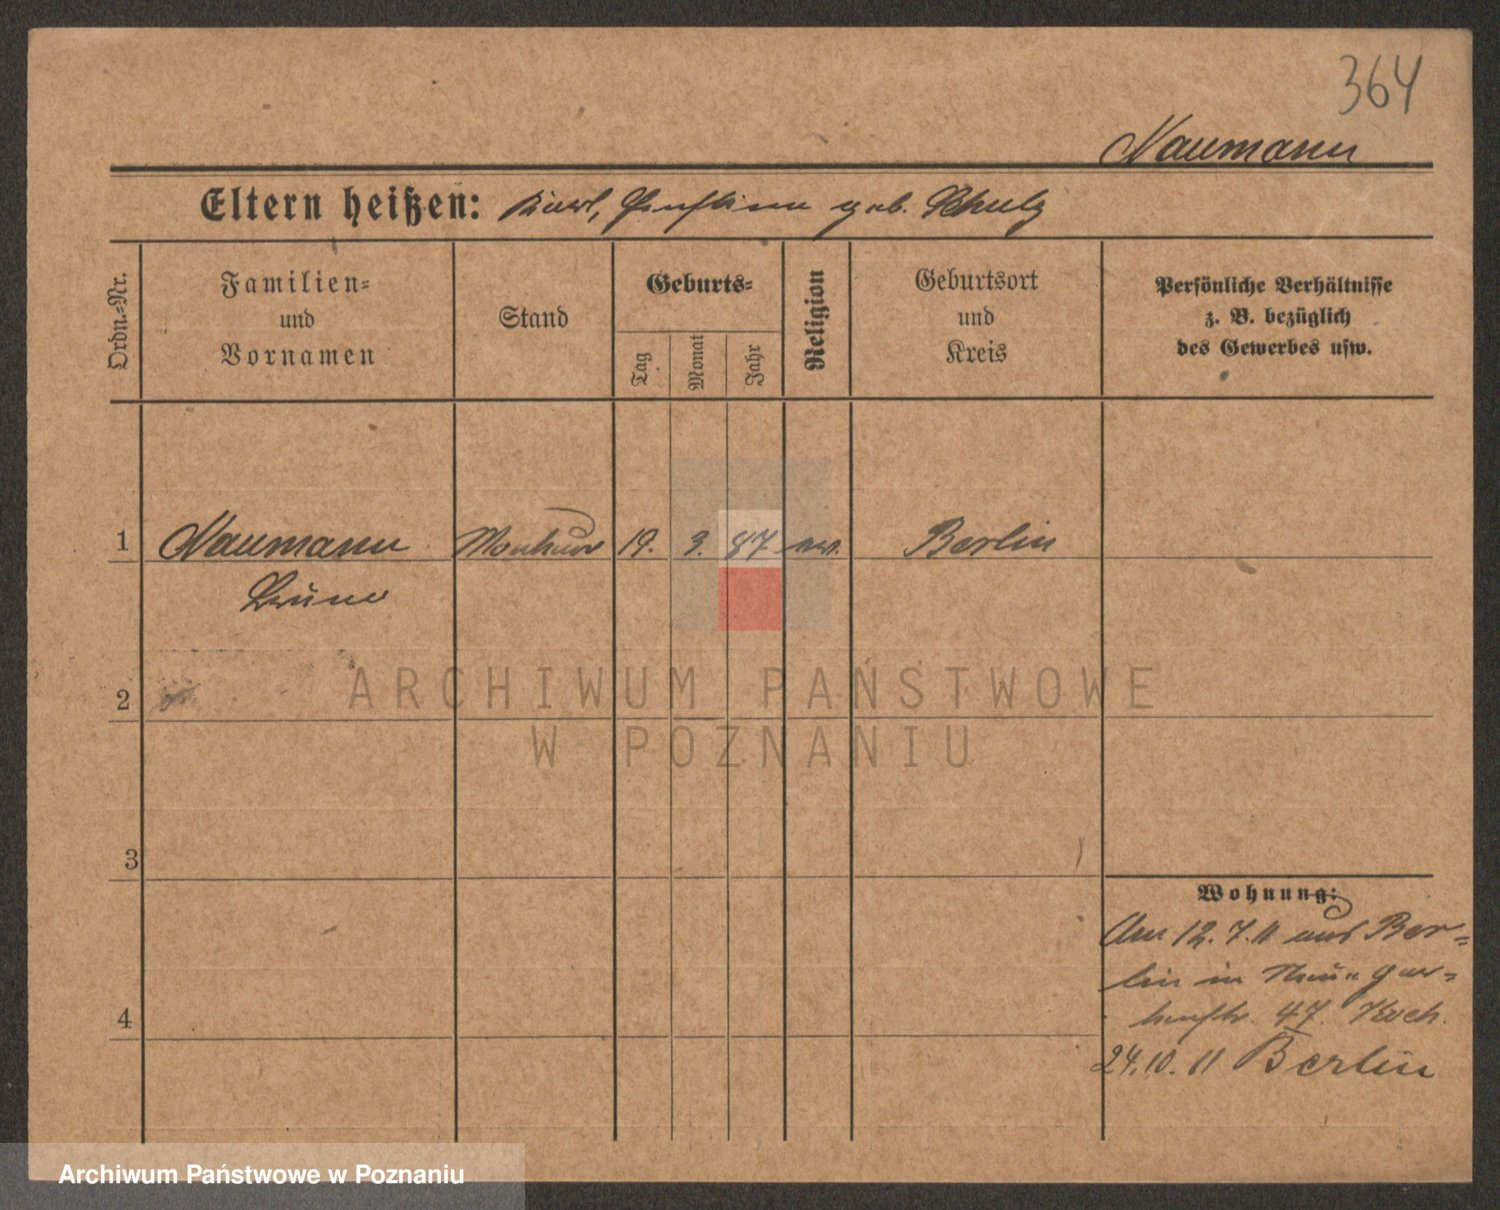 364
Naumann
Eltern heißen: Karl, Pauline geb. Schulz
Ordn.-Nr.
Familien-
und
Vornamen
Stand
Geburts-
Tag
Monat
Jahr
Religion
Geburtsort
und
Kreis
Persönliche Verhältnisse
z. B. bezüglich
des Gewerbes usw.
1 Naumann Monteur 19. 3. 87 ev. Berlin
Bruno
2
3
4
Wohnung:
Am 12.7.11 aus Ber-
lin in
47. Koch.
24.10.11 Berlin
ARCHIWUM PAŃSTWOWE
W POZNANIU
Archiwum Państwowe w Poznaniu